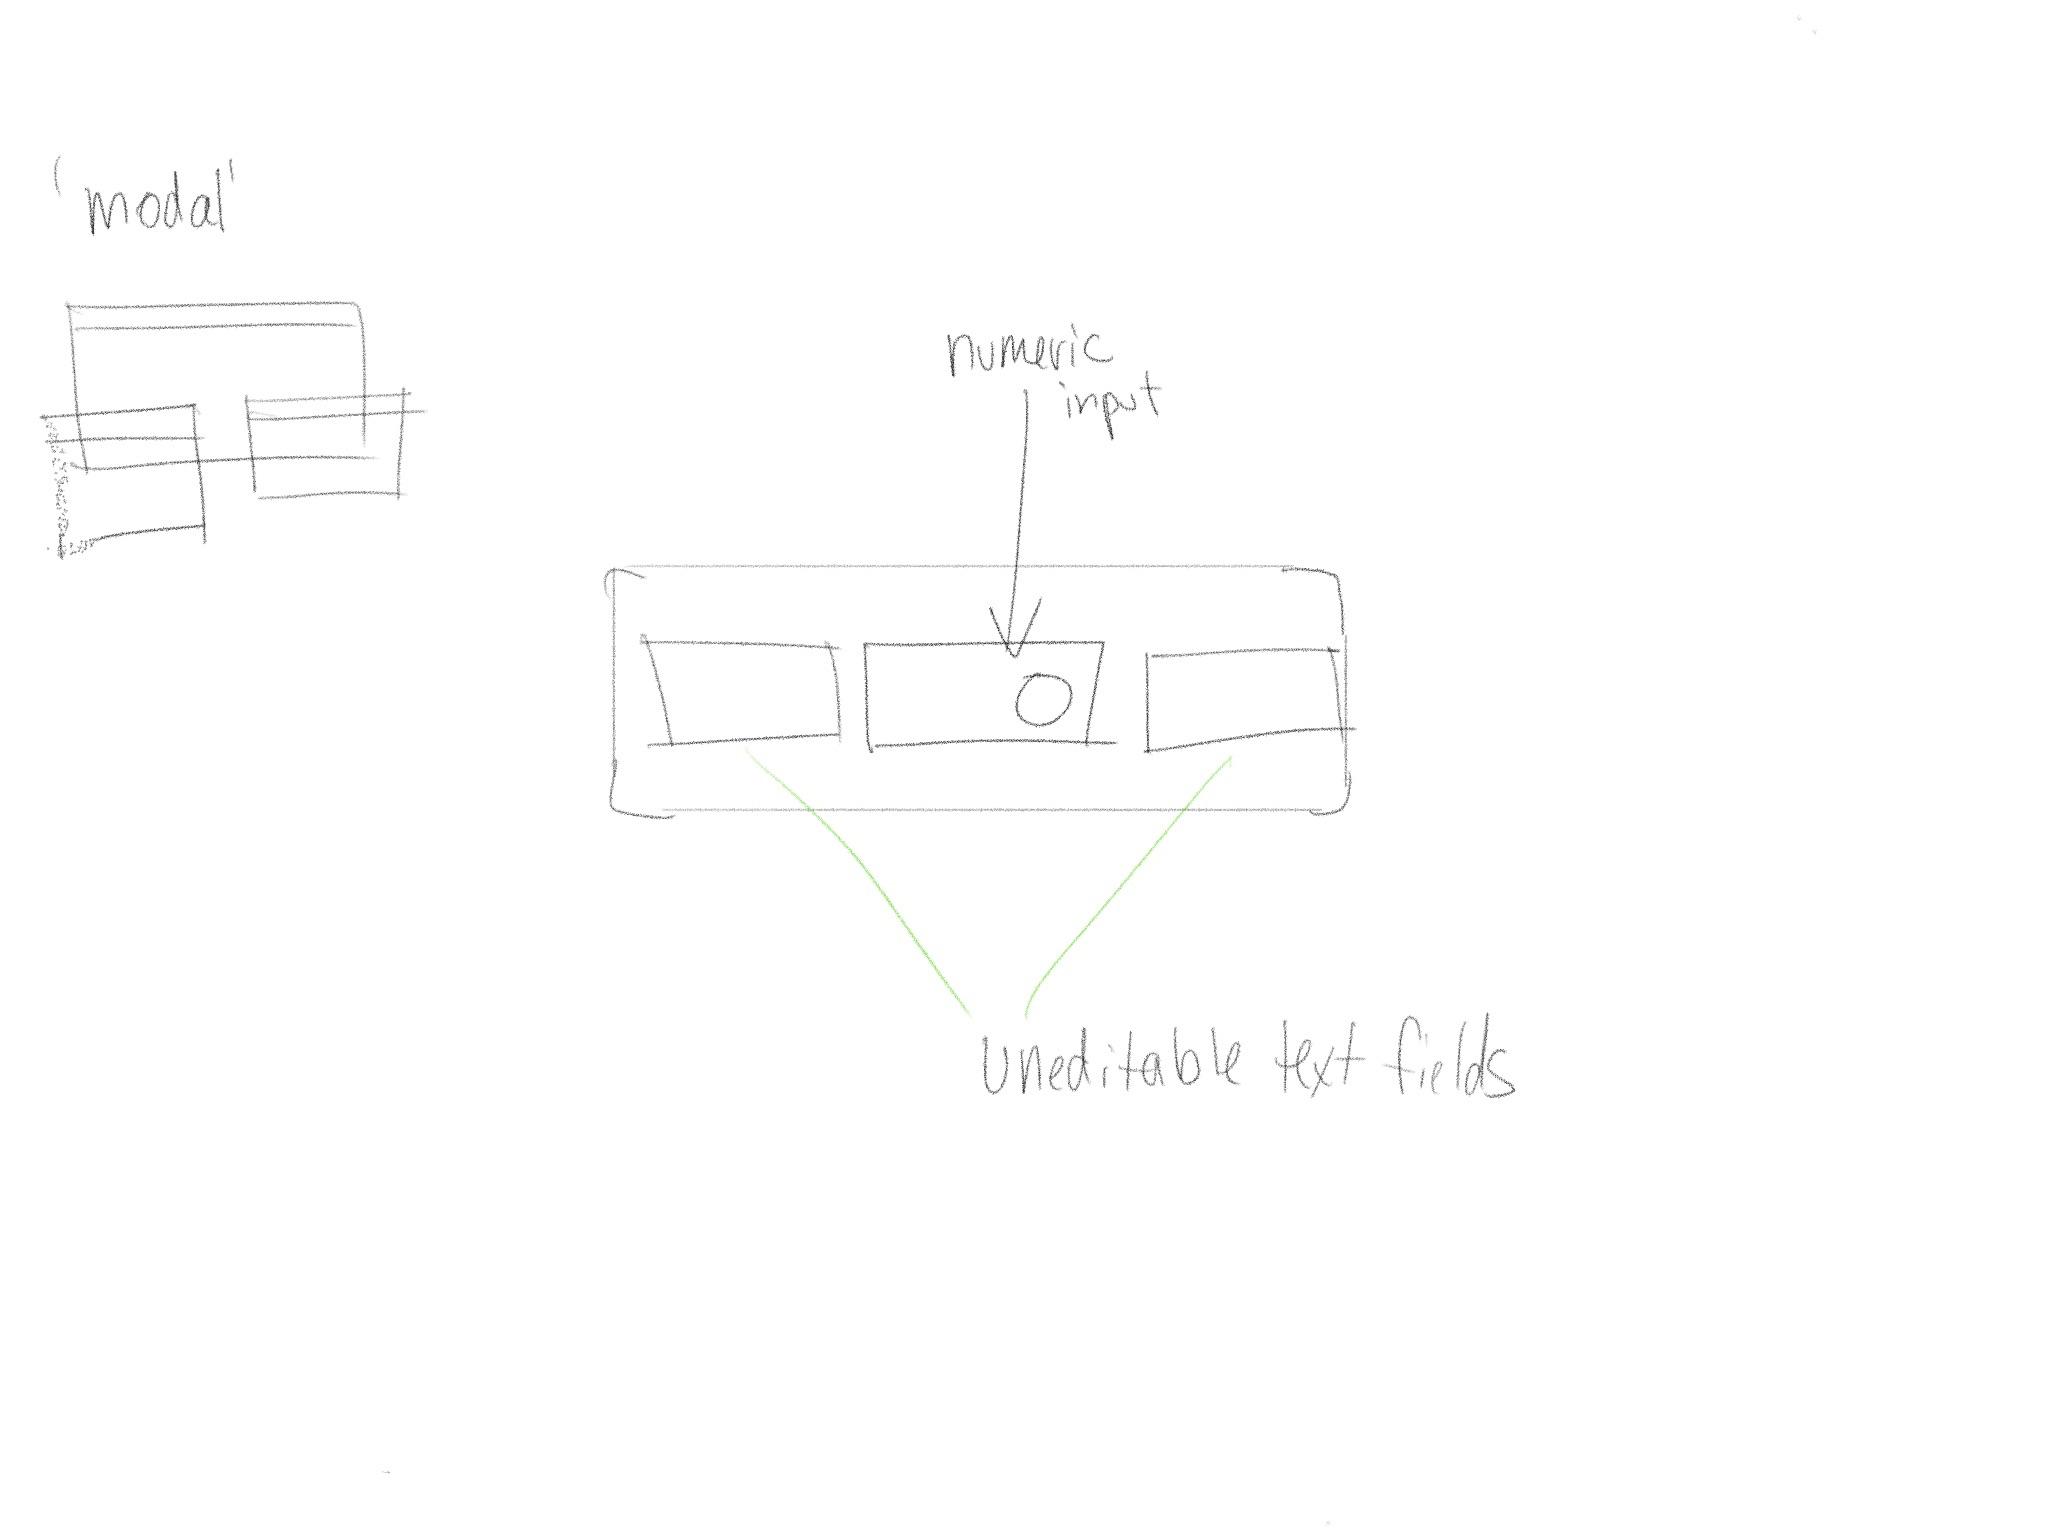 'modal'
numeric
input
uneditable text fields